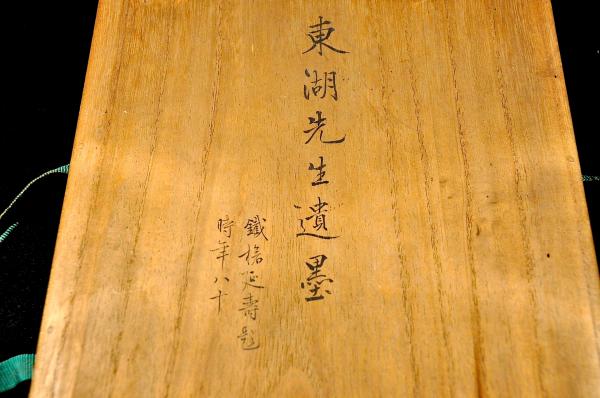 東湖先生遺墨
鐵槍延壽題
時年八十